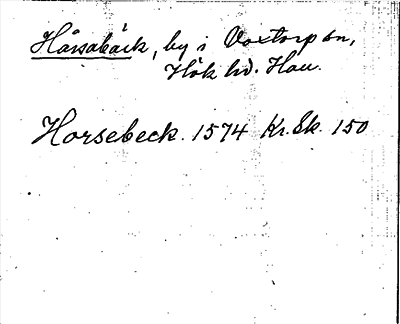 Hårsabäck, by i Voxtorp sn,
Hök hd. Hau.
Horsebeck. 1574 Kr. Sk. 150